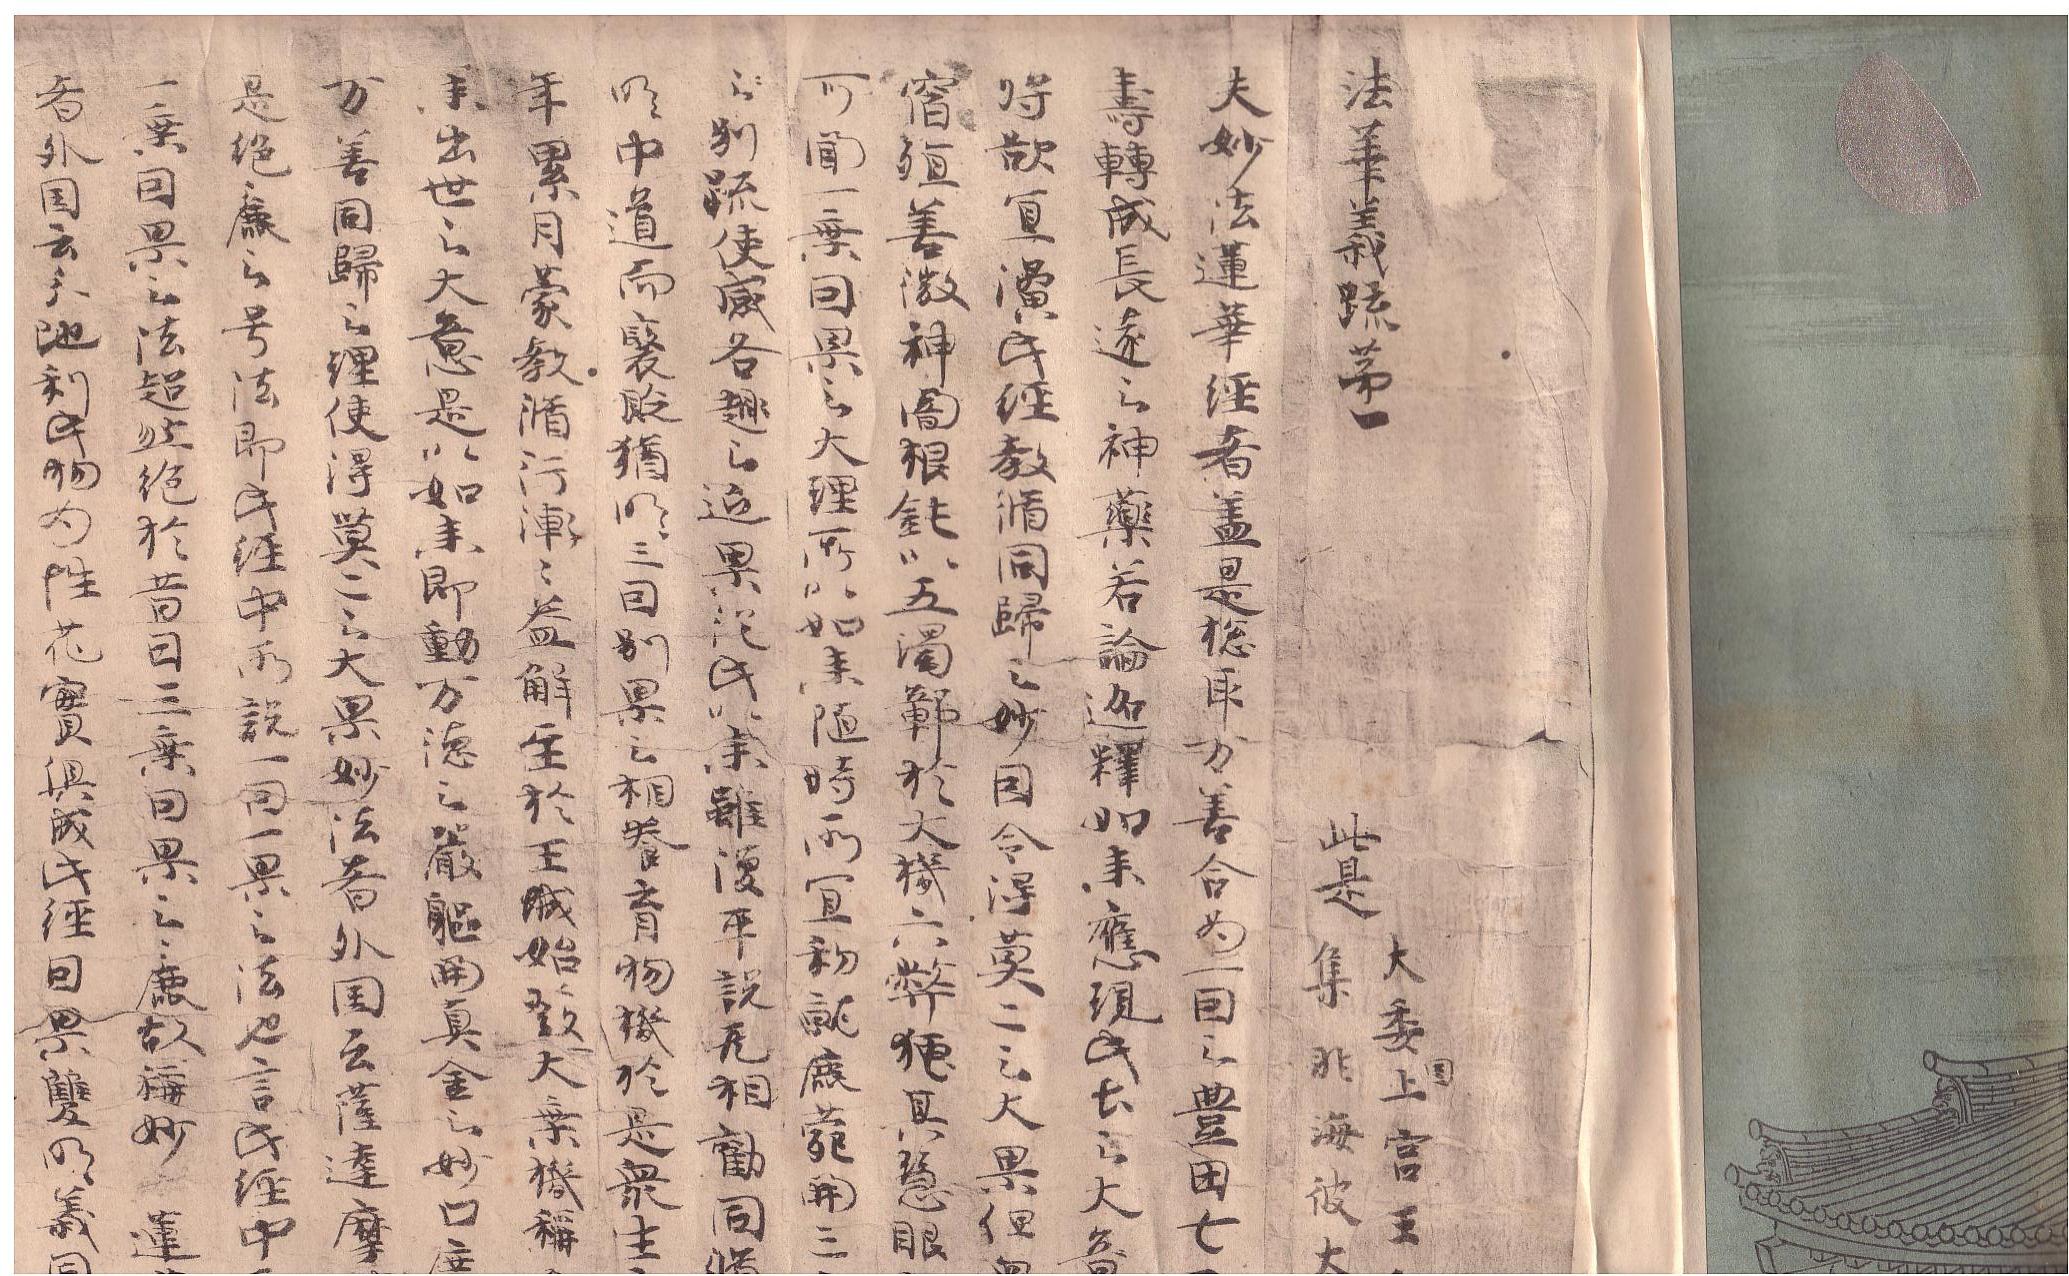 法華義疏第一
此是
大委上宮王
集非海彼
夫妙法蓮華経者盖是惣取万善合為一因之豊田七
壽轉成長遠之神藥若論迩釋如来應現此土之大意
将欲宜演此経教脩同歸之妙因令得莫二之大果但
宿殖善微神闇根鈍以五濁鄣於大機六弊掩其慧眼
可聞一乗因果之大理所以如来随時所宜初就鹿菀開三
之別疏使感各趣之近果従此以来雖復平説无相勸同脩
明中道而褒貶猶明三因別果之相養育物機於是衆生
年累月蒙教脩行漸々益解至於王城始發大乗機稱
来出世之大意是以如来即動万徳之嚴軀開真金之妙口
万善同歸之理使得莫二之大果妙法者外国云薩達摩
是絶麁之号法即此経中所説一因一果之法也言此経中
一乗因果之法超然絶於昔日三乗因果之麁故稱妙 蓮
者外国云分陁利此物為性花實俱成此経因果雙明義同